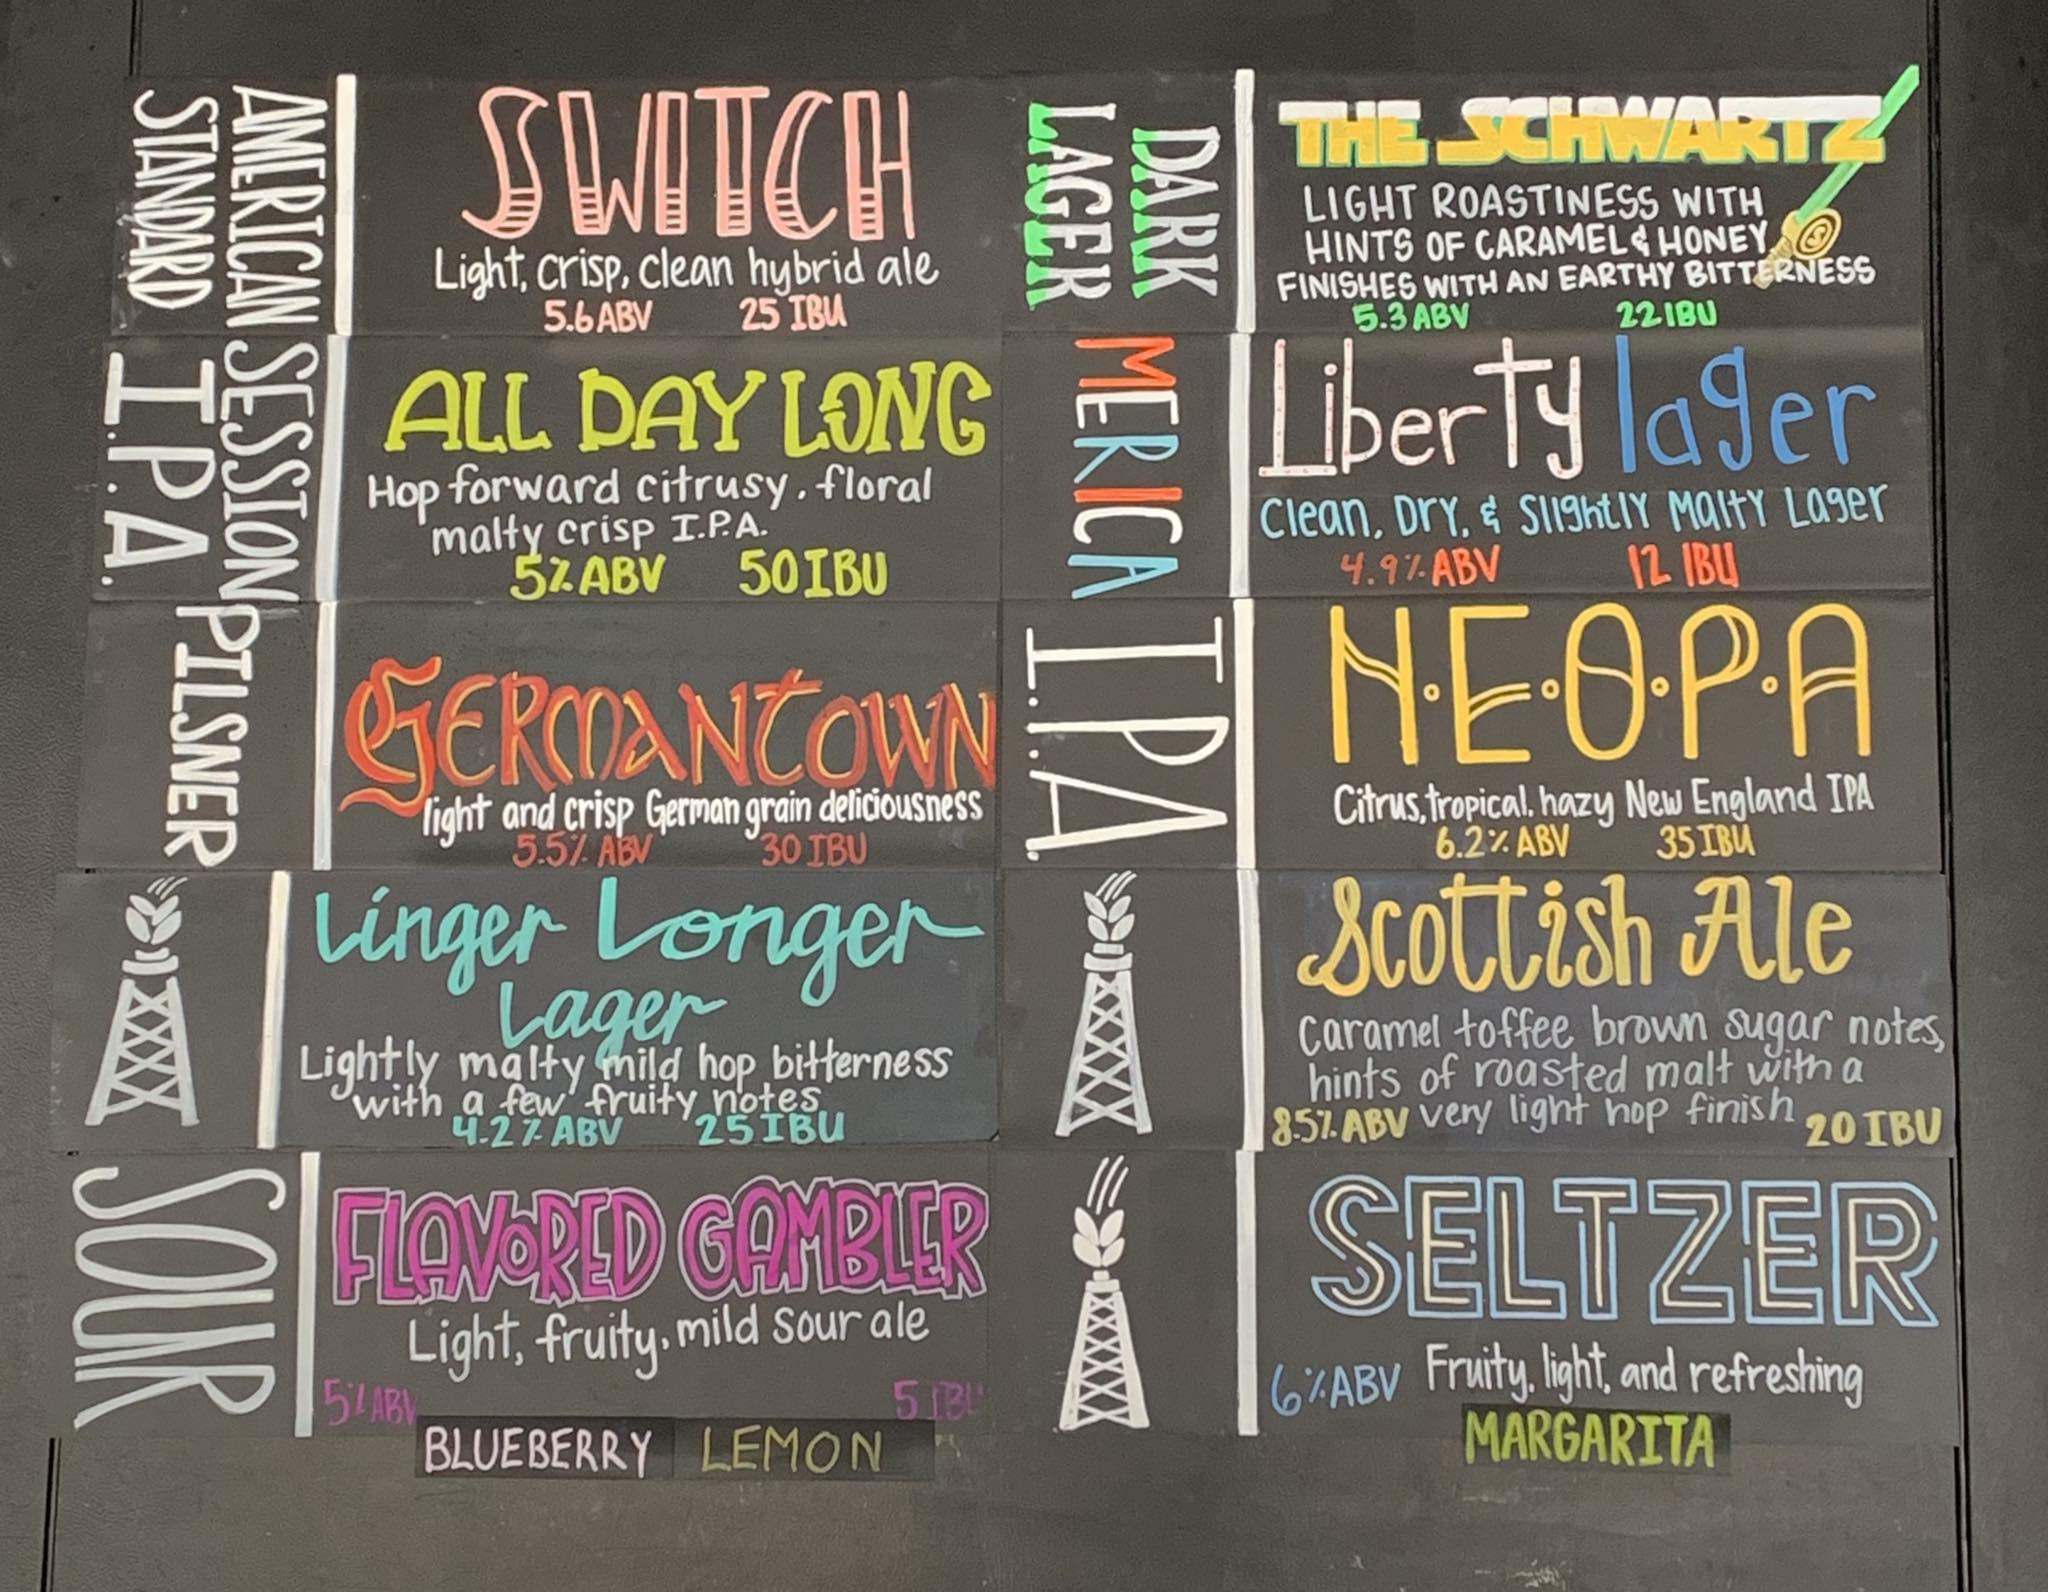 AMERICAN
STANDARD
SWITCH
Light, crisp, clean hybrid ale
5.6 ABV 25 IBU
SESSION
I.P.A.
ALL DAY LONG
Hop forward citrusy, floral
malty crisp I.P.A.
5% ABV 50 IBU
PILSNER
GERMANTOWN
light and crisp German grain deliciousness
5.5% ABV 30 IBU
Linger Longer
Lager
Lightly malty mild hop bitterness
with a few fruity notes
4.2% ABV 25 IBU
SOUR
FLAVORED GAMBLER
Light, fruity, mild sour ale
5% ABV 5 IBU
BLUEBERRY LEMON
DARK
LAGER
THE SCHWARTZ
LIGHT ROASTINESS WITH
HINTS OF CARAMEL & HONEY
FINISHES WITH AN EARTHY BITTERNESS
5.3 ABV 22 IBU
MERICA
Liberty lager
Clean, Dry, & Slightly Malty Lager
4.9% ABV 12 IBU
I.P.A.
N.E.O.P.A
Citrus, tropical, hazy New England IPA
6.2% ABV 35 IBU
Scottish Ale
Caramel toffee brown sugar notes,
hints of roasted malt with a
very light hop finish
8.5% ABV 20 IBU
SELTZER
6% ABV Fruity, light, and refreshing
MARGARITA